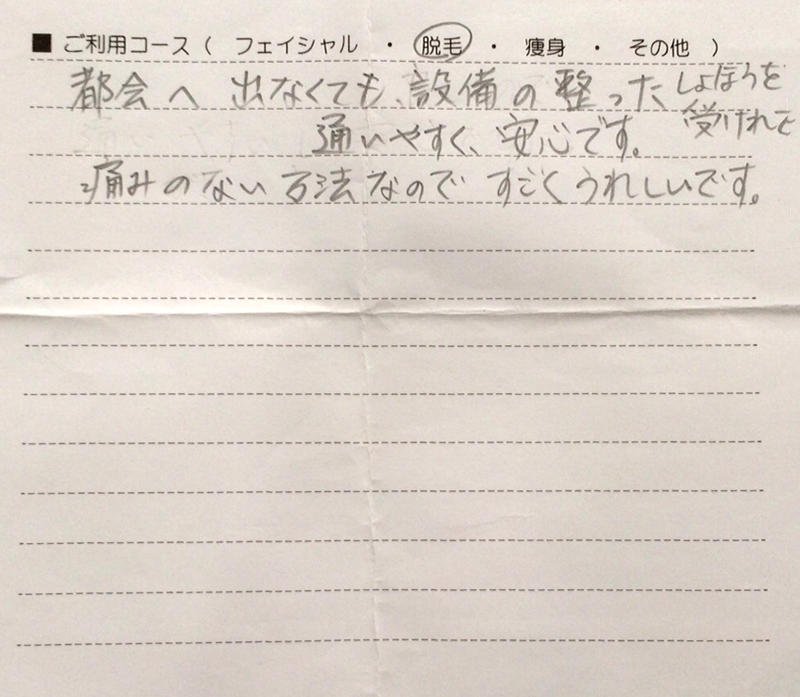 ■ ご利用コース（ フェイシャル ・ 脱毛 ・ 痩身 ・ その他 ）
都会へ 出なくても、設備の 整った しょほうを
受けれて
通いやすく、安心です。
痛みのない 方法なので すごくうれしいです。